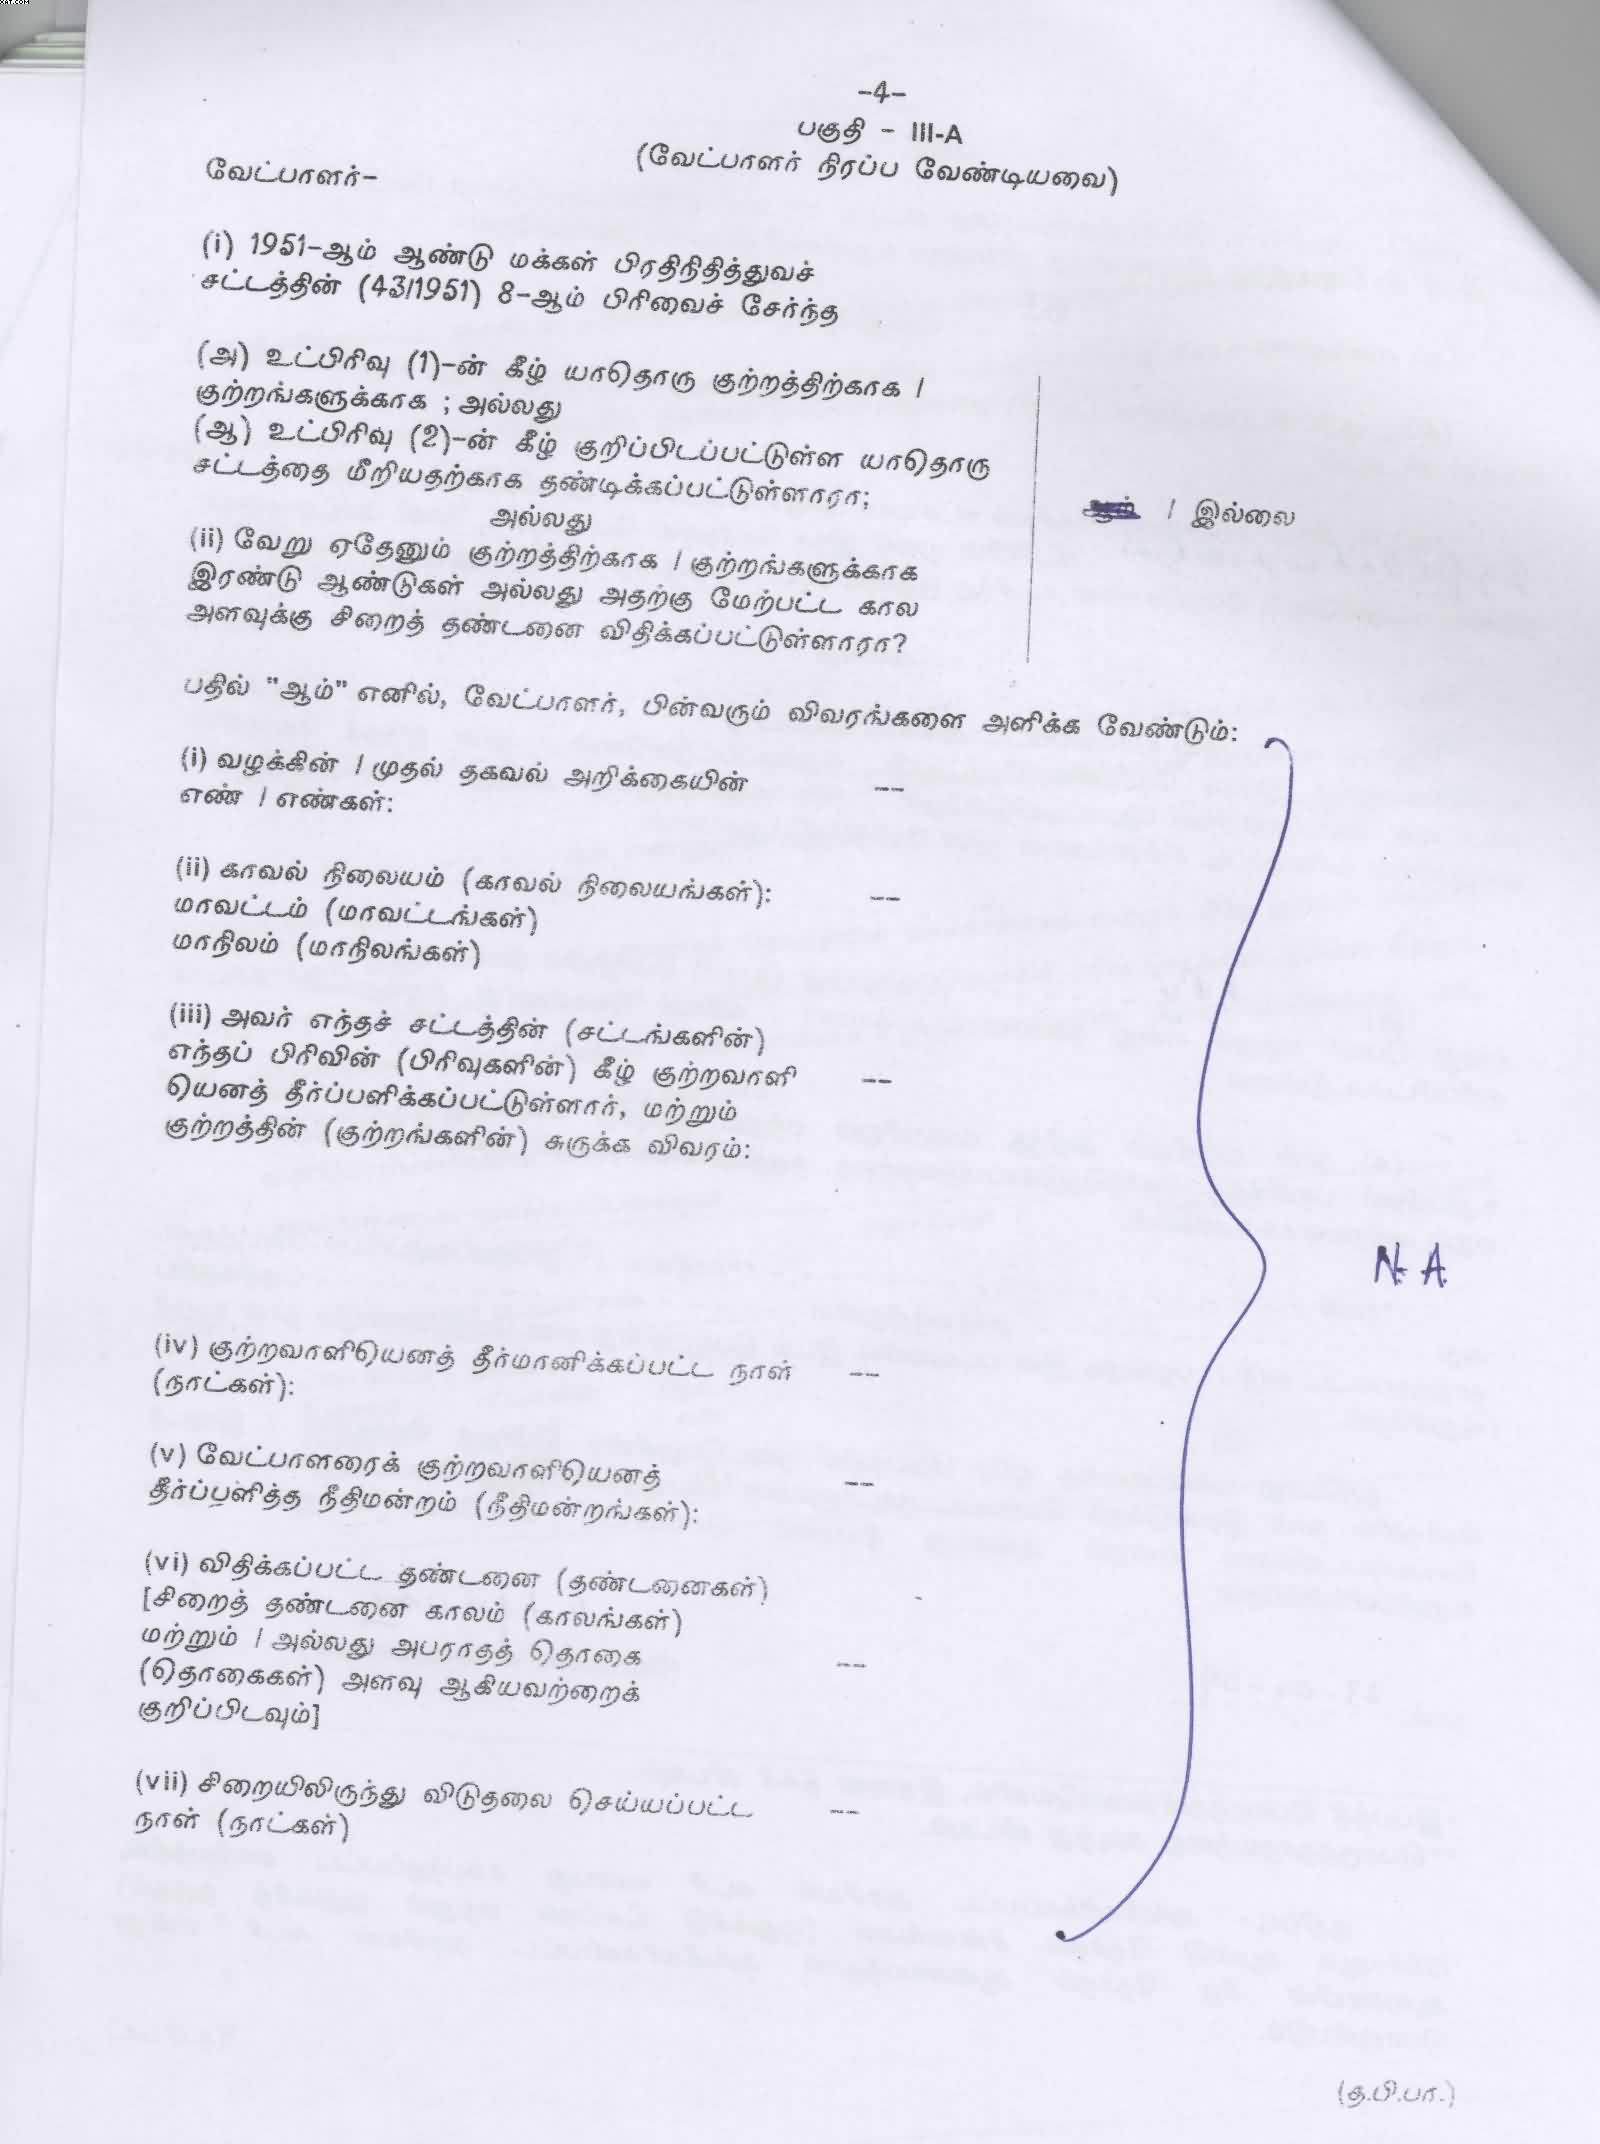 -4-
பகுதி - III-A
(வேட்பாளர் நிரப்ப வேண்டியவை)
வேட்பாளர்-
(i) 1951-ஆம் ஆண்டு மக்கள் பிரதிநிதித்துவச்
சட்டத்தின் (43/1951) 8-ஆம் பிரிவைச் சேர்ந்த
(அ) உட்பிரிவு (1)-ன் கீழ் யாதொரு குற்றத்திற்காக /
குற்றங்களுக்காக ; அல்லது
(ஆ) உட்பிரிவு (2)-ன் கீழ் குறிப்பிடப்பட்டுள்ள யாதொரு
சட்டத்தை மீறியதற்காக தண்டிக்கப்பட்டுள்ளாரா;
அல்லது
ஆம் / இல்லை
(ii) வேறு ஏதேனும் குற்றத்திற்காக / குற்றங்களுக்காக
இரண்டு ஆண்டுகள் அல்லது அதற்கு மேற்பட்ட கால
அளவுக்கு சிறைத் தண்டனை விதிக்கப்பட்டுள்ளாரா?
பதில் "ஆம்" எனில், வேட்பாளர், பின்வரும் விவரங்களை அளிக்க வேண்டும்:
(i) வழக்கின் / முதல் தகவல் அறிக்கையின் --
எண் / எண்கள்:
(ii) காவல் நிலையம் (காவல் நிலையங்கள்): --
மாவட்டம் (மாவட்டங்கள்)
மாநிலம் (மாநிலங்கள்)
(iii) அவர் எந்தச் சட்டத்தின் (சட்டங்களின்)
எந்தப் பிரிவின் (பிரிவுகளின்) கீழ் குற்றவாளி --
யெனத் தீர்ப்பளிக்கப்பட்டுள்ளார், மற்றும்
குற்றத்தின் (குற்றங்களின்) சுருக்க விவரம்:
N. A.
(iv) குற்றவாளியெனத் தீர்மானிக்கப்பட்ட நாள் --
(நாட்கள்):
(v) வேட்பாளரைக் குற்றவாளியெனத் --
தீர்ப்பளித்த நீதிமன்றம் (நீதிமன்றங்கள்):
(vi) விதிக்கப்பட்ட தண்டனை (தண்டனைகள்)
[சிறைத் தண்டனை காலம் (காலங்கள்)
மற்றும் / அல்லது அபராதத் தொகை --
(தொகைகள்) அளவு ஆகியவற்றைக்
குறிப்பிடவும்]
(vii) சிறையிலிருந்து விடுதலை செய்யப்பட்ட --
நாள் (நாட்கள்)
(த.பி.பா.)